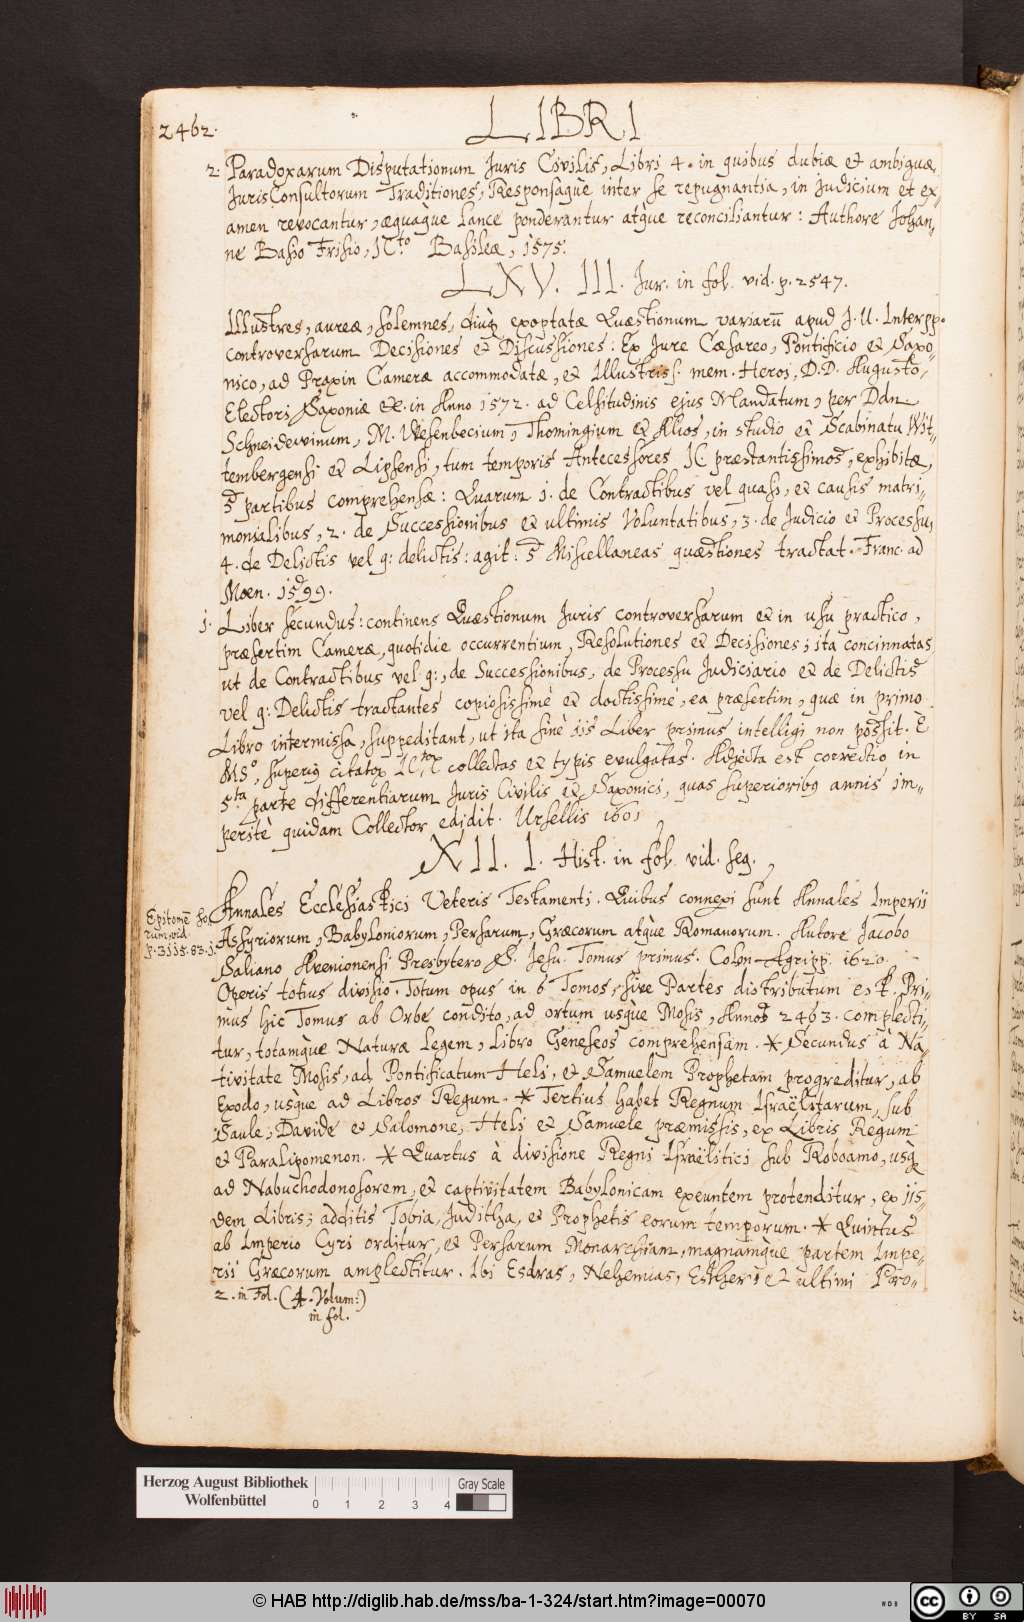 2462.
LIBRI
2. Paradoxarum Disputationum Juris Civilis, Libri 4. in quibus dubiæ et ambiguæ
JurisConsultorum Traditiones, Responsaq̀ue inter se repugnantia, in judicium et ex-
amen revocantur, æquaque lance ponderantur atq̀ue reconciliantur: Authore Johan-
ne Basso Frisio, ICto. Basileæ, 1575.
LXV. III. Jur. in fol. vid. p. 2547.
Illustres, aureæ, solemnes, diuq expoptatæ Quæstionum variarū apud J. U. Interpp.
controversarum Decisiones et Discussiones: Ex Jure Cæsareo, Pontificio et Saxo-
nico, ad Praxin Cameræ accommodatæ, et Illustriss. mem. Heroi, D.D. Augusto,
Electori Saxoniæ &c. in Anno 1572. ad Celsitudinis ejus Mandatum, per Ddn
Schneidewinum, M. Wesenbecium, Thomingium et Alios, in studio et Scabinatu Wit-
tembergensi et Lipsensi, tum temporis Antecessores IC præstantissimos, exhibitæ,
5 partibus comprehensæ: Quarum 1. de Contractibus vel quasi, et causis matri-
monialibus, 2. de Successionibus et ultimis Voluntatibus, 3. de Judicio et Processu,
4. de Delictis vel q: delictis: agit: 5 Miscellaneas quæstiones tractat. Franc. ad
Moen. 1599.
1. Liber secundus: continens Quæstionum Juris controversarum et in usu practico,
præsertim Cameræ, quotidie occurrentium, Resolutiones et Decisiones; ita concinnatas
ut de Contractibus vel q:, de Successionibus, de Processu Judiciario et de Delictis
vel q: Delictis tractantes copiosissimè et doctissimè, ea præsertim, quæ in primo
Libro intermissa, suppeditant, ut ita sine iis Liber primus intelligi non possit. E
MSo, superiq citatoꝝ ICtoꝝ collectas et typis evulgatas. Adjecta est correctio in
5ta. parte differentiarum Juris Civilis et Saxonici, quas superioribq annis im-
peritè quidam Collector edidit. Ursellis 1601,
XII. I. Hist. in fol. vid. seq.,
Annales Ecclesiastici Veteris Testamenti. Quibus connexi sunt Annales Imperii
Epitomē ho-
rum vid.
p. 3115. 83. 1.
Assyriorum, Babyloniorum, Persarum, Græcorum atq̀ue Romanorum. Autore Jacobo
Saliano Avenionensi Presbytero S. Jesu. Tomus primus. Colon Agripp. 1620.
Operis totius divisio. Totum opus in 6 Tomos, sive Partes distributum est. Pri-
mus hic Tomus ab Orbe condito, ad ortum usq̀ue Mosis, Annos 2463. complecti-
tur, totamq̀ue Naturæ Legem, Libro Geneseos comprehensam. * Secundus à Na-
tivitate Mosis, ad Pontificatum Heli, et Samuelem Prophetam progreditur, ab
Exodo, usq̀ue ad Libros Regum. * Tertius habet Regnum Israëlitarum, sub
Saule, Davide et Salomone, Heli et Samuele præmissis, ex Libris Regum
et Paralipomenon. * Quartus à divisione Regni Israëlitici sub Roboamo, usq
ad Nabuchodonosorem, et captivitatem Babylonicam exeuntem protenditur, ex iis-
dem Libris; additis Tobia, Juditha, et Prophetis eorum temporum. * Quintus
ab Imperio Cyri orditur, et Persarum Monarchiam, magnamq̀ue partem Impe-
rii Græcorum amplectitur. Ibi Esdras, Nehemias, Esther; et ultimi Pro-
2. in Fol. (4. Volum:)
in fol.
Herzog August Bibliothek
Wolfenbüttel
0 1 2 3 4
Gray Scale
© HAB http://diglib.hab.de/mss/ba-1-324/start.htm?image=00070
WDB
cc BY SA